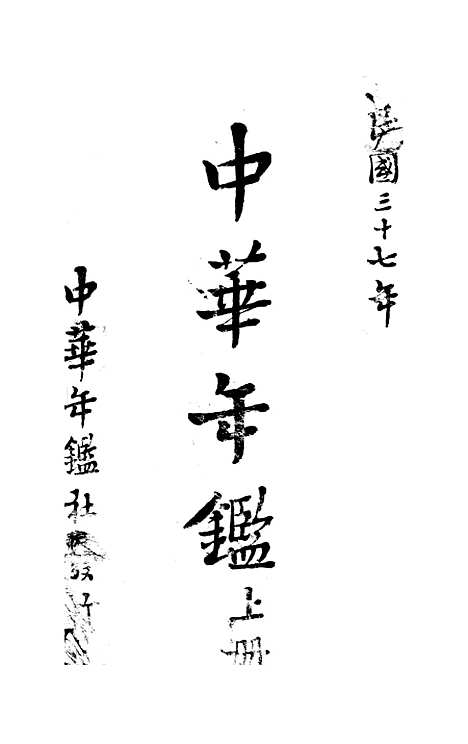 民國三十七年
中華年鑑上冊
中華年鑑社